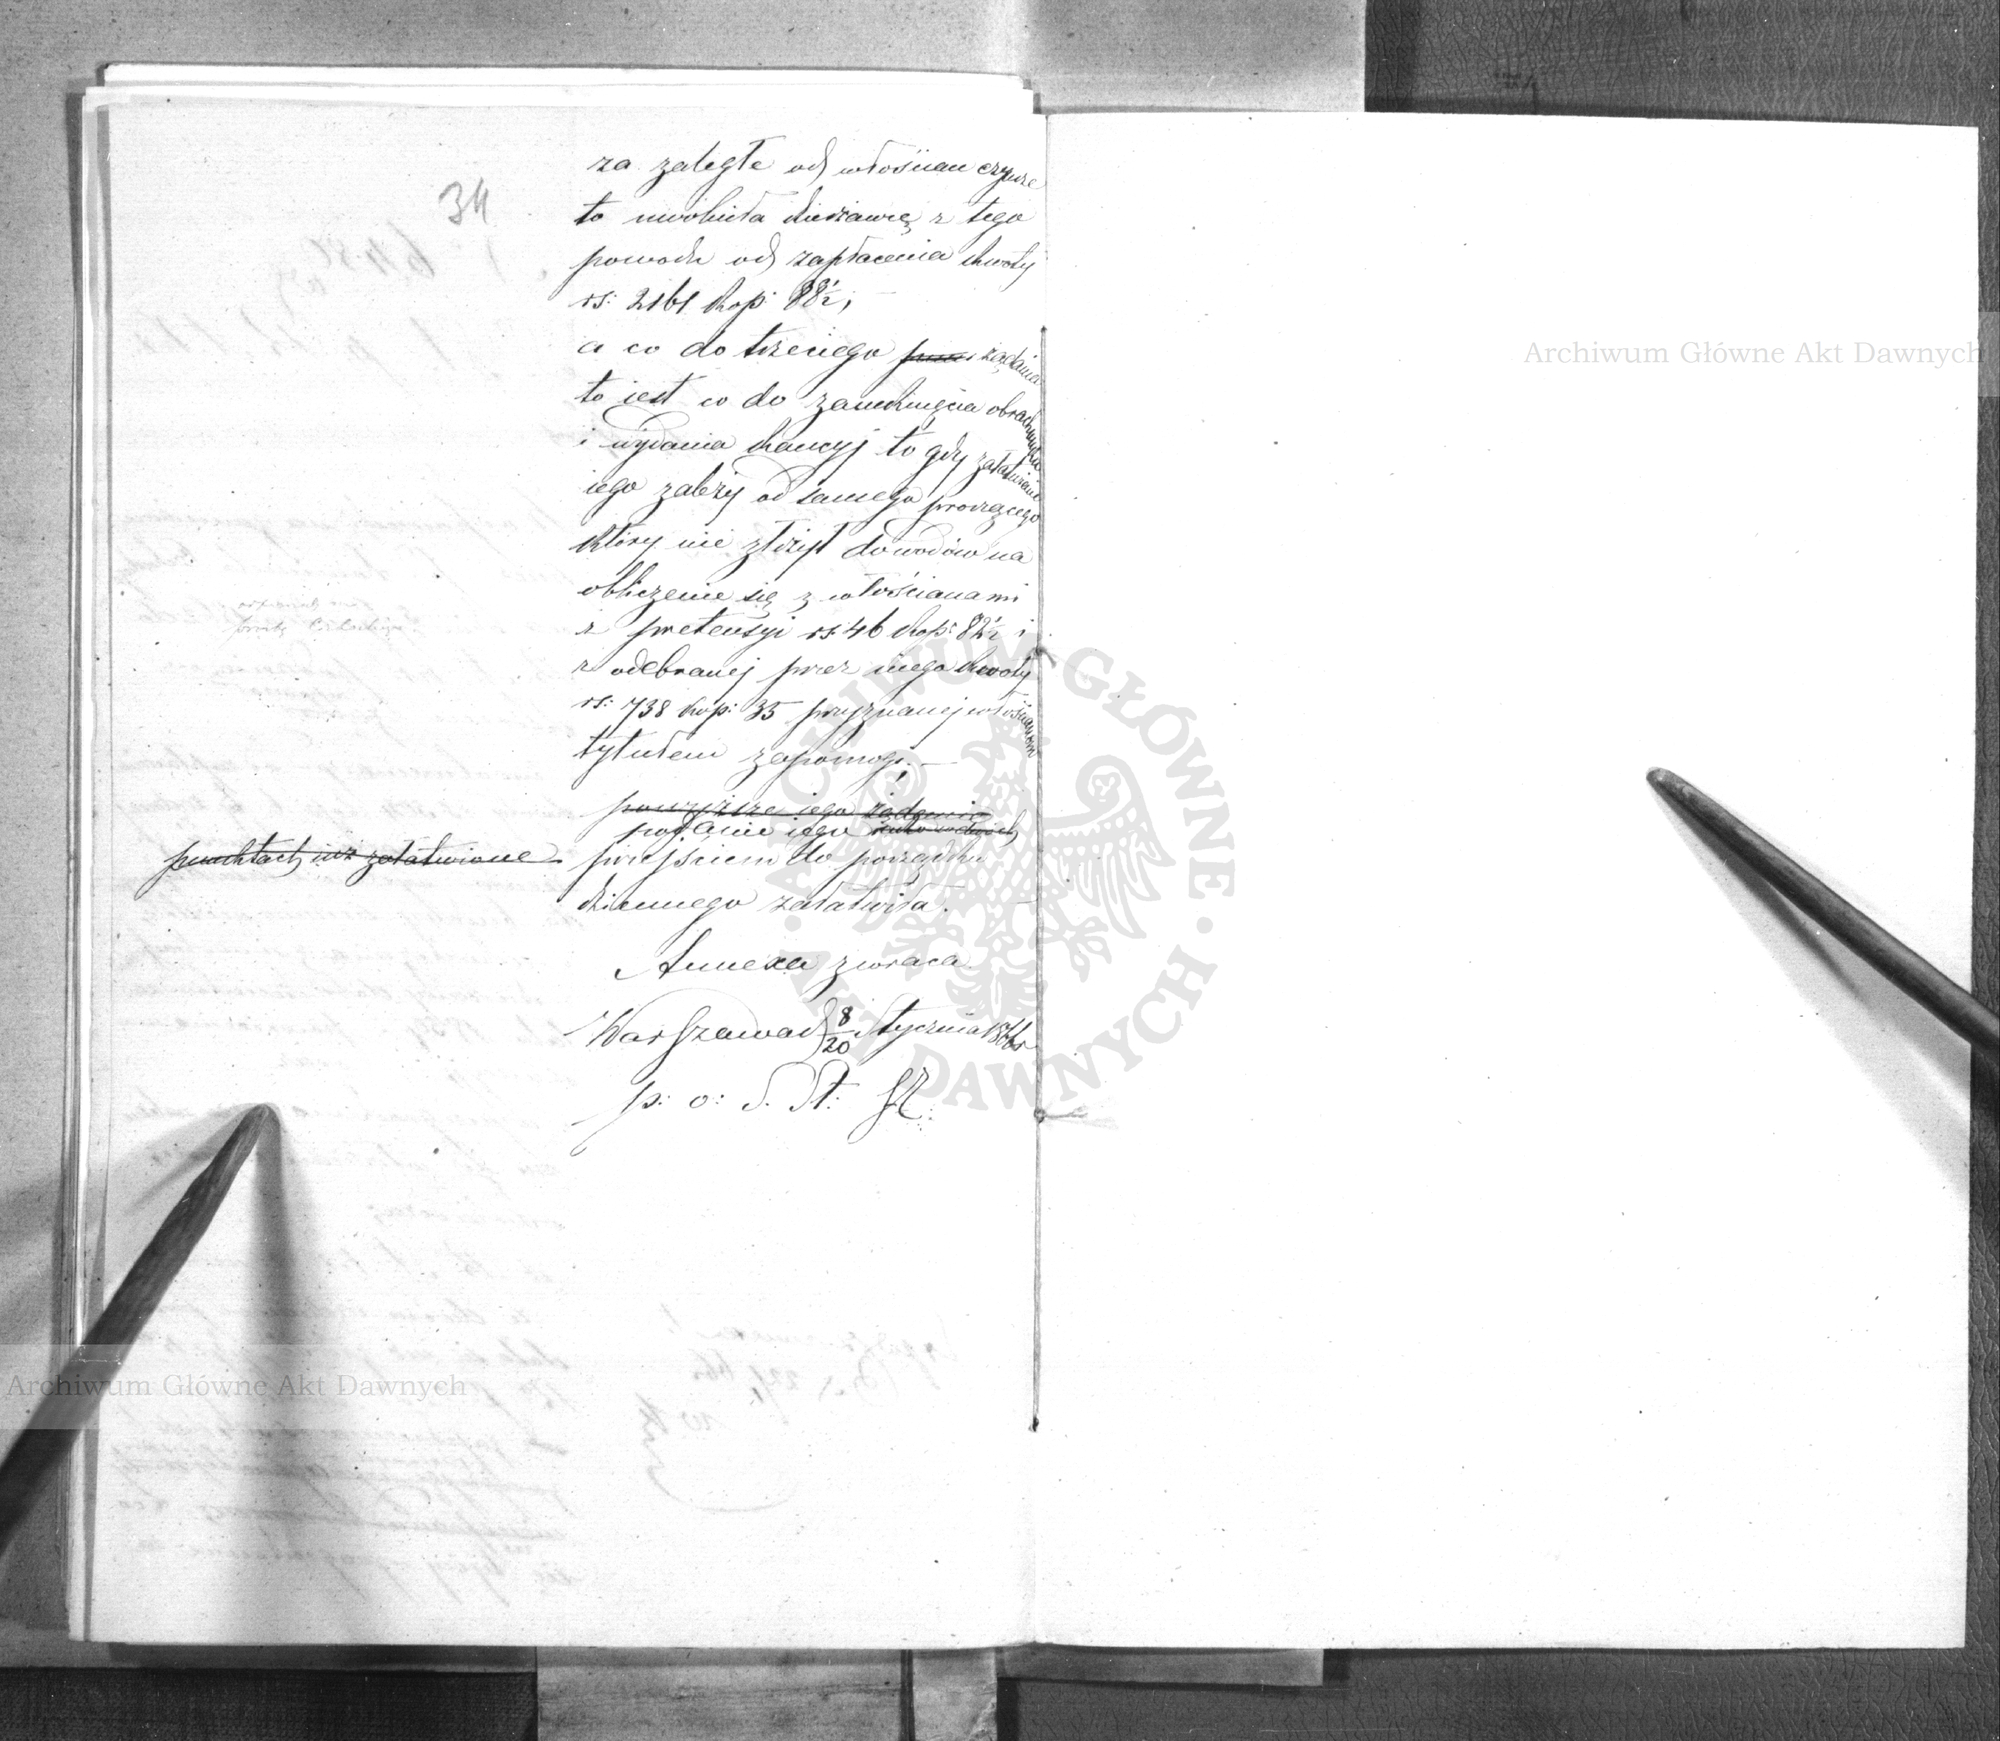 34
za zaległe od włościan czynsze
to uwolniła dzierżawcę z tego
powodu od zapłacenia kwoty
rs: 2161 kop: 88½,
a co do trzeciego żądania
to iest co do zamknięcia obrachunku
i wydania kaucyj to gdy załatwienie
iego zależy od samego proszącego
który nie złożył dowodów na
obliczenie się z włościanami
z pretensyi rs: 46 kop: 82½ i
z odebranej przez niego kwoty
rs: 738 kop: 35 przyznanej włościanom
tytułem zapomogi. —
powyższe iego żądania
podanie iego
punktach iuż załatwione
przejściem do porządku
dziennego załatwiła.
Annexa zwraca
Warszawa d 8/20 Stycznia 1866 r
p: o: S. St:
Archiwum Główne Akt Dawnych
Archiwum Główne Akt Dawnych
ARCHIWUM GŁÓWNE AKT DAWNYCH